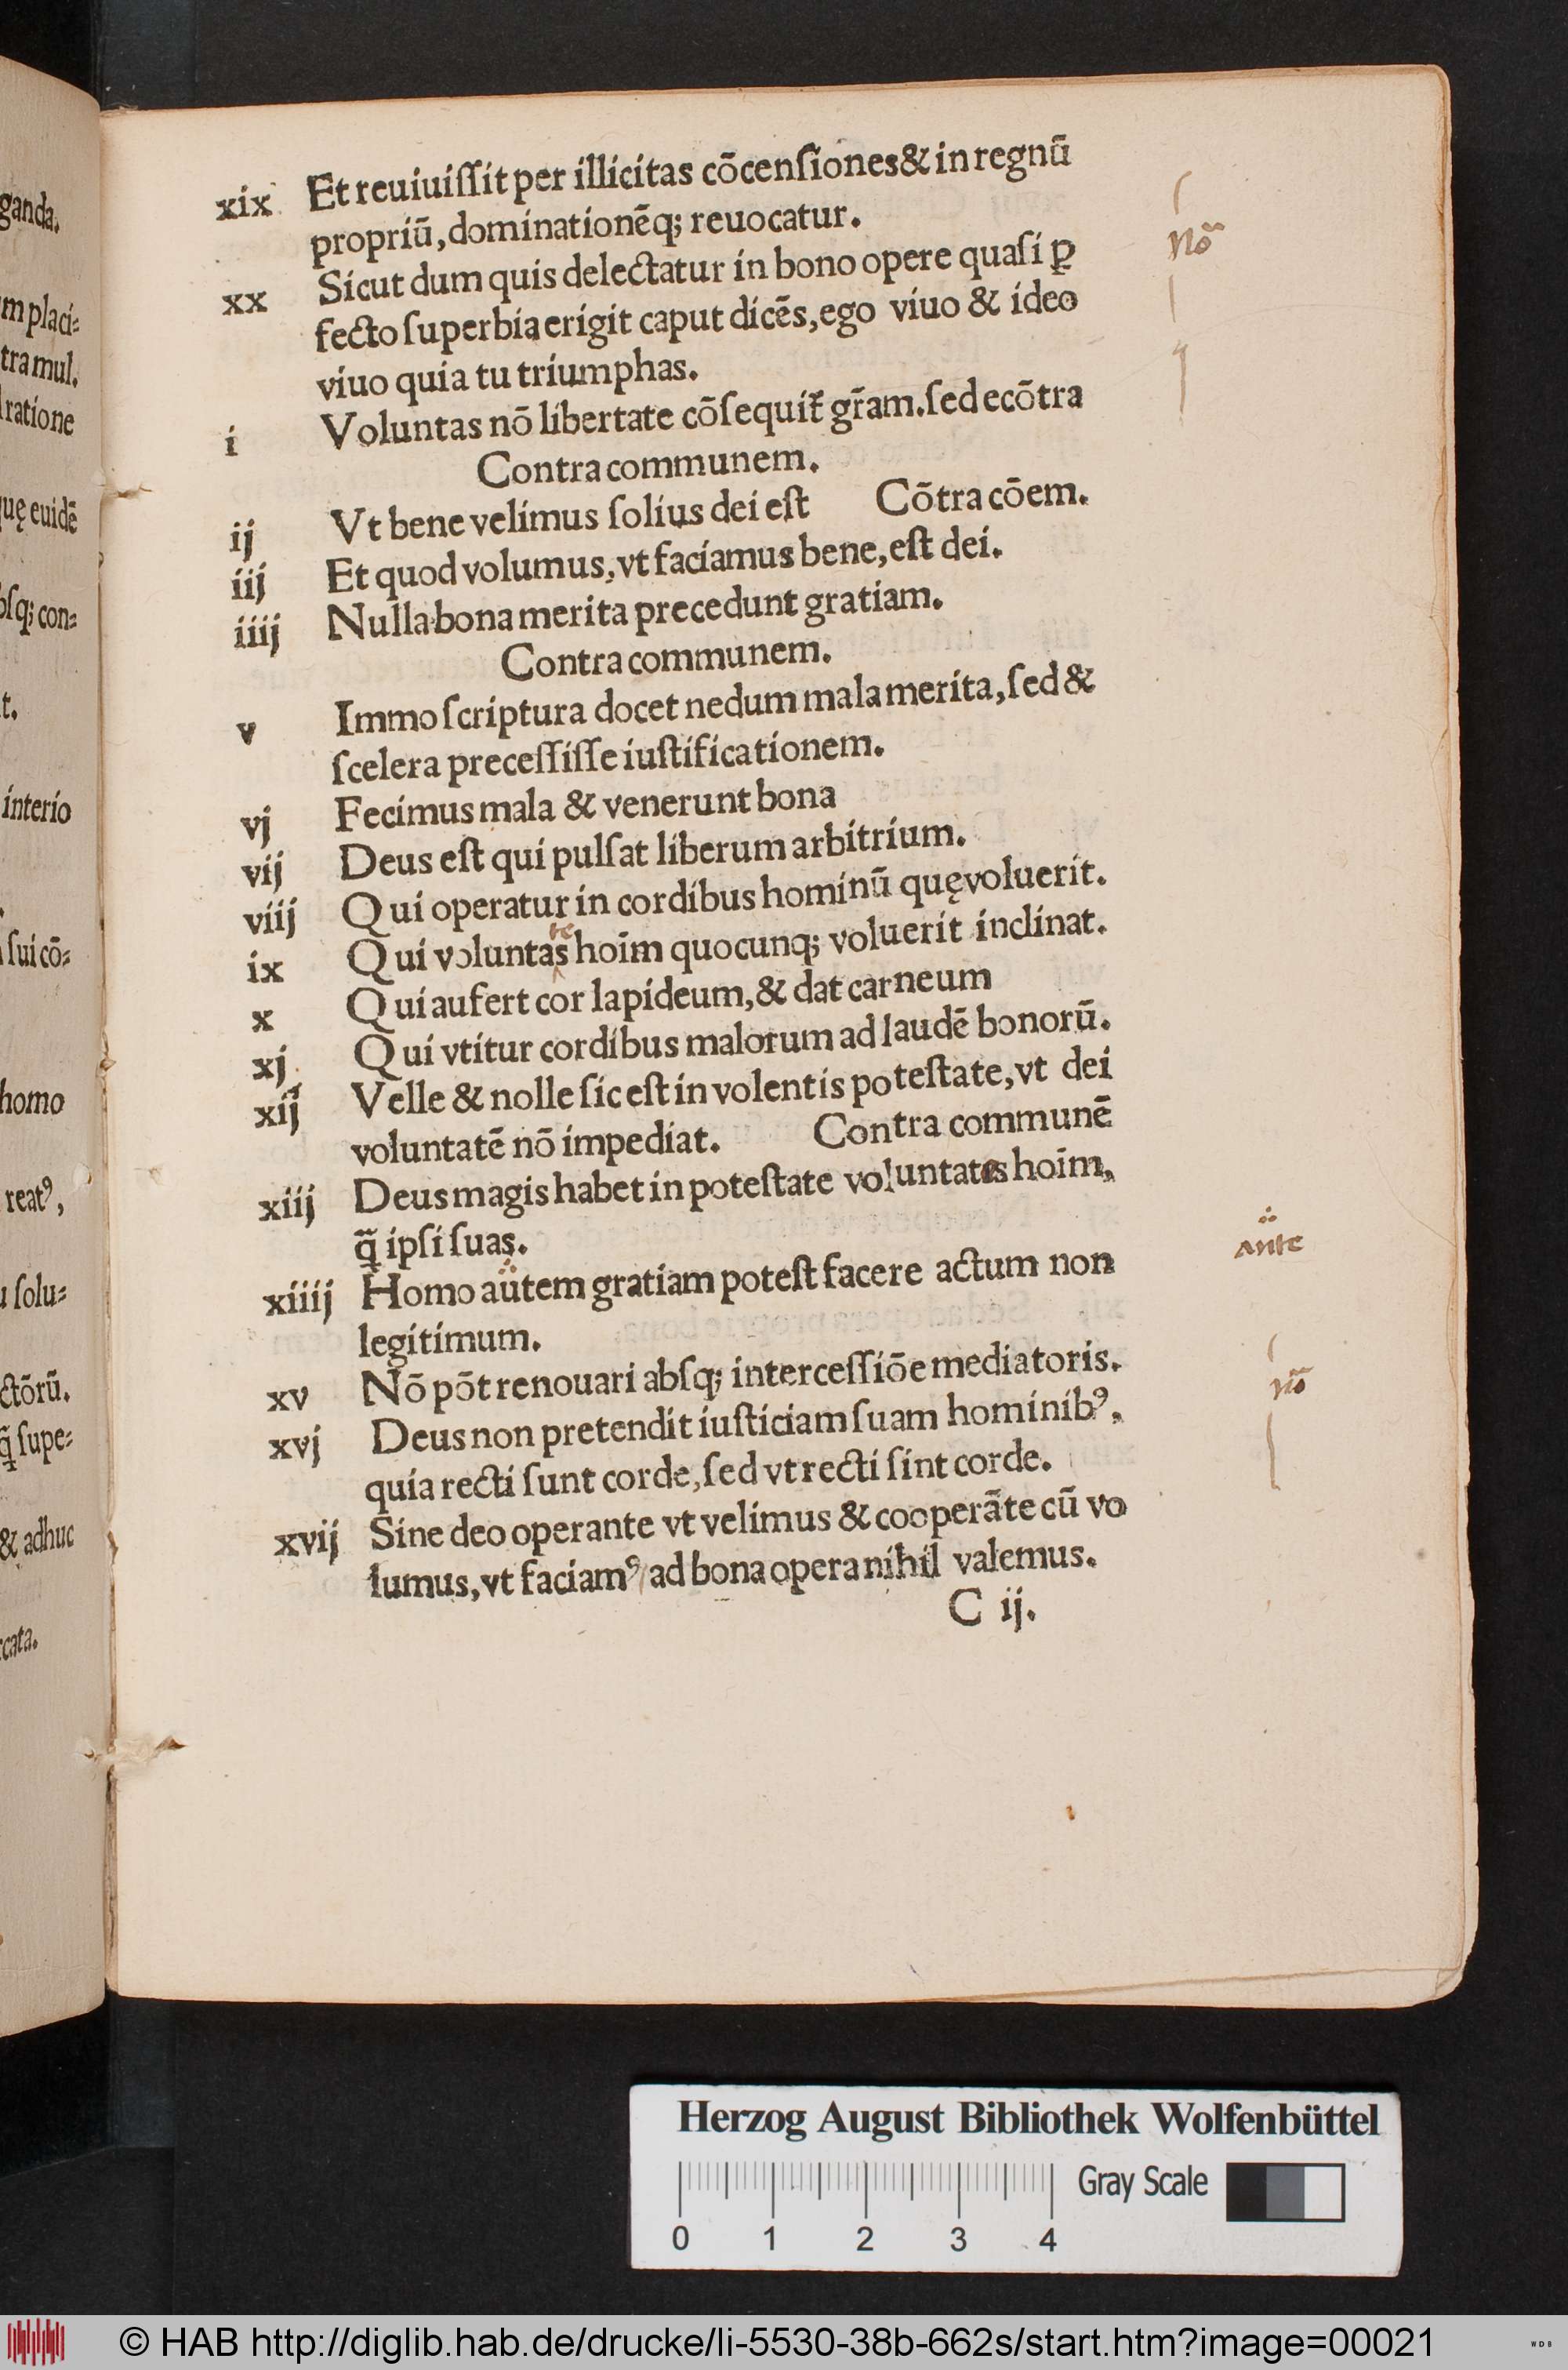 xix Et reuiuiſſit per illicitas cōcenſiones & in regnū
propriū, dominationēq; reuocatur.
xx Sicut dum quis delectatur in bono opere quaſi ꝑ
fecto ſuperbia erigit caput dicēs, ego viuo & ideo
viuo quia tu triumphas.
i Voluntas nō libertate cōſequit᷑ gr̄am. ſed ecōtra
Contra communem.
ij Vt bene velimus ſolius dei eſt Cōtra cōem.
iij Et quod volumus, vt faciamus bene, eſt dei.
iiij Nulla bona merita precedunt gratiam.
Contra communem.
v Immo ſcriptura docet nedum mala merita, ſed &
ſcelera preceſſiſſe iuſtificationem.
vj Fecimus mala & venerunt bona
vij Deus eſt qui pulſat liberum arbitrium.
viij Qui operatur in cordibus hominū quę voluerit.
ix Qui voluntas hoīm quocunq; voluerit inclinat.
x Qui aufert cor lapideum, & dat carneum
xj Qui vtitur cordibus malorum ad laudē bonorū.
xij Velle & nolle ſic eſt in volentis poteſtate, vt dei
voluntatē nō impediat. Contra communē
xiij Deus magis habet in poteſtate voluntates hoīm,
q̄ ipſi ſuas.
xiiij Homo autem gratiam poteſt facere actum non
legitimum.
xv Nō pōt renouari abſq; interceſſiōe mediatoris.
xvj Deus non pretendit iuſticiam ſuam hominibꝰ,
quia recti ſunt corde, ſed vt recti ſint corde.
xvij Sine deo operante vt velimus & cooperāte cū vo
lumus, vt faciamꝰ ad bona opera nihil valemus.
C ij.
Nō
ante
Nō
ganda.
m placi⸗
tra mul.
ratione
uę euidē
bſq; con⸗
t.
interio
ſui cō⸗
homo
reatꝰ,
ſolu⸗
ctōrū.
q̄ ſupe⸗
& adhuc
cata.
Herzog August Bibliothek Wolfenbüttel
Gray Scale
0 1 2 3 4
© HAB http://diglib.hab.de/drucke/li-5530-38b-662s/start.htm?image=00021
WDB